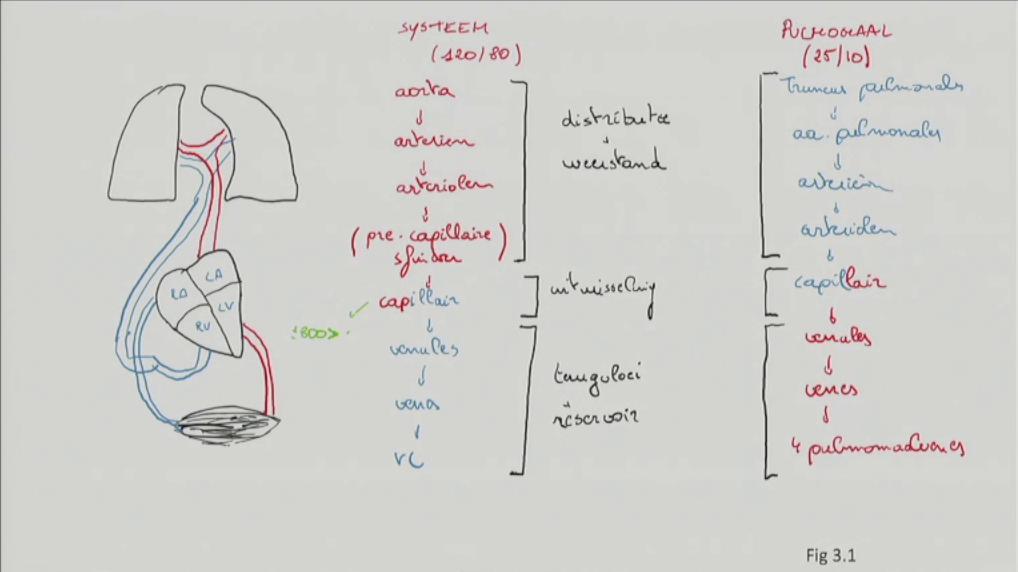 SYSTEEM
(120/80)
aorta
arteriën
arteriolen
(pre-capillaire
sfincter)
capillair
venules
venes
VC
distributie
weerstand
uitwisseling
terugvloei
reservoir
PULMONAAL
(25/10)
Truncus pulmonales
aa. pulmonales
arteriën
arteriolen
capillair
venules
venes
4 pulmonaalvenes
LA
RA
LV
RV
Fig 3.1